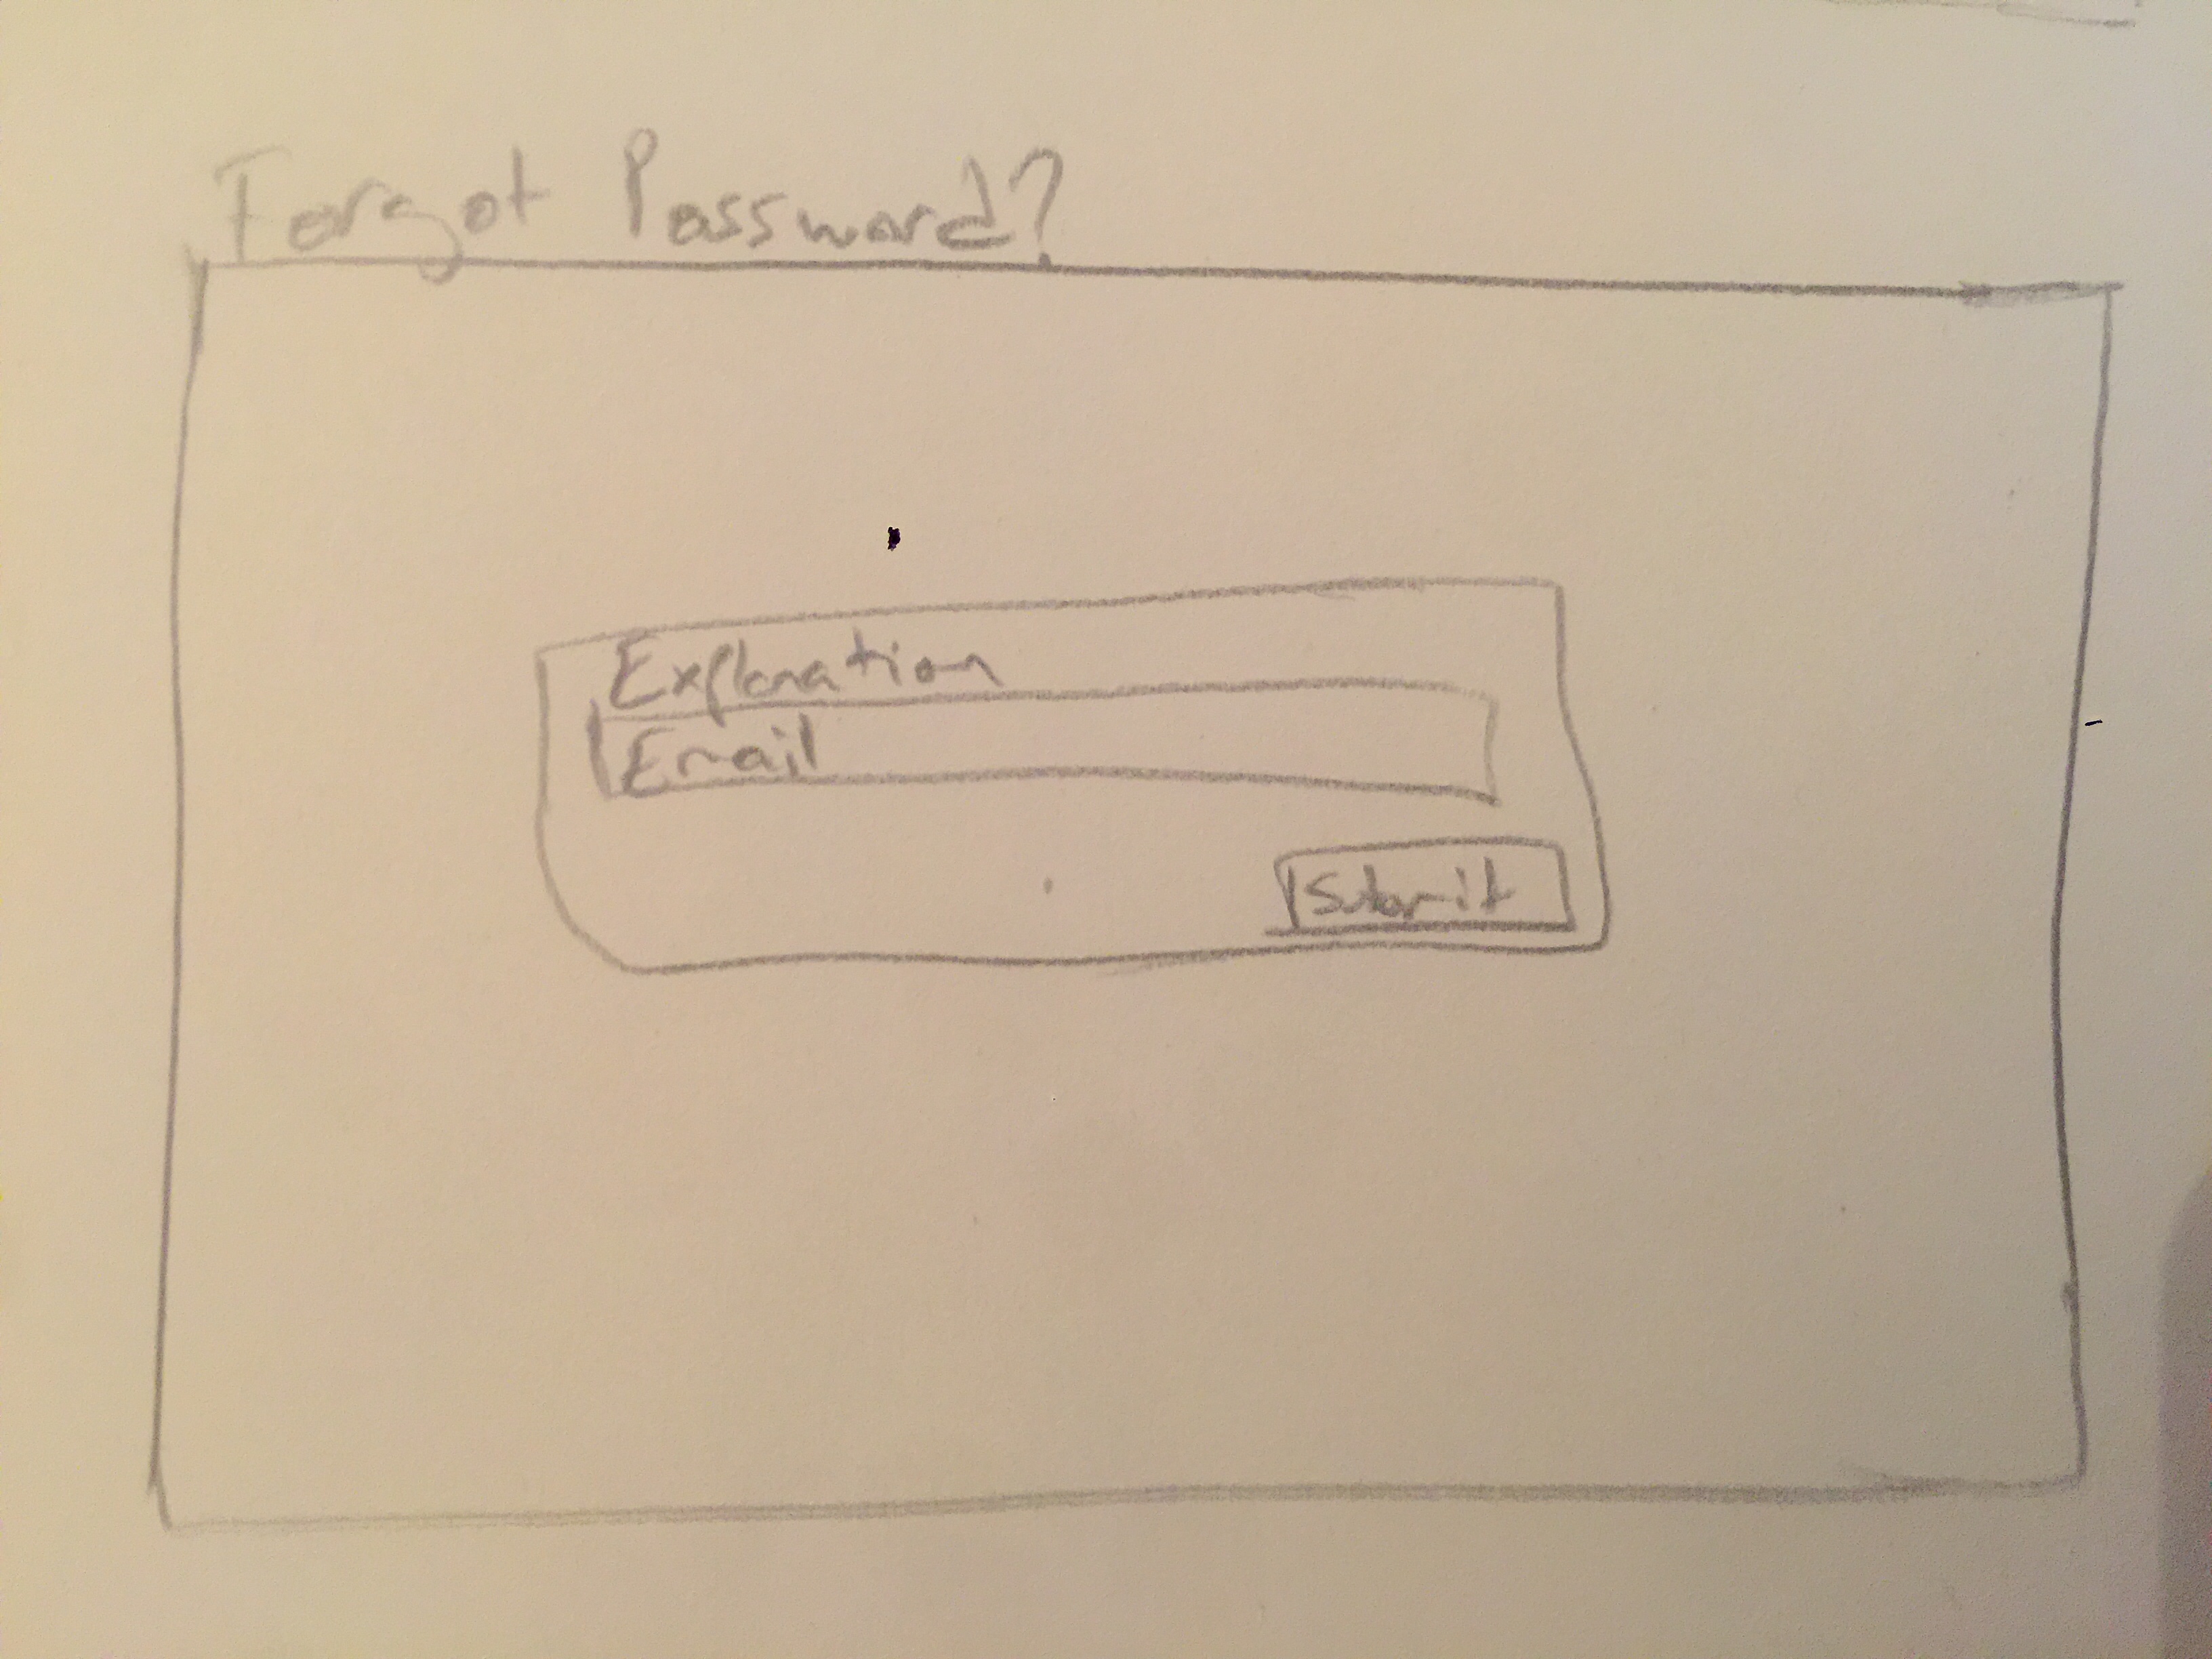 Forgot Password?
Explanation
Email
Submit